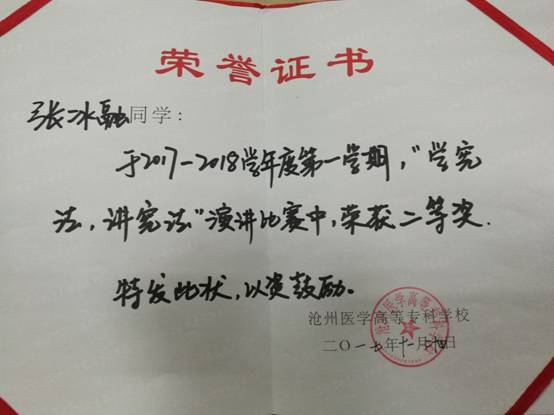 荣誉证书
张冰融同学：
于2017-2018学年度第一学期，“学宪
法，讲宪法”演讲比赛中，荣获二等奖.
特发此状，以资鼓励。
沧州医学高等专科学校
二〇一七年十一月廿四日